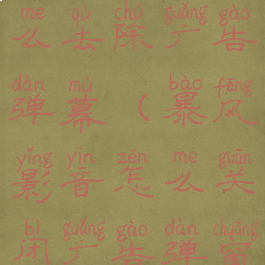 me qù chú guǎng gào
么去除广告
dàn mù bào fēng
弹幕(暴风
yǐng yīn zěn me guān
影音怎么关
bì guǎng gào dàn chuāng
闭广告弹窗